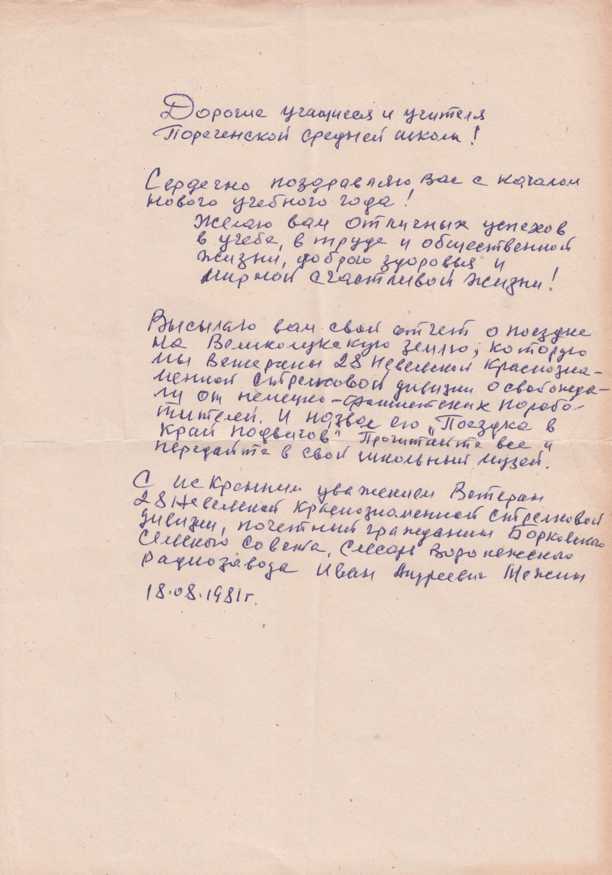 Дорогие учащиеся и учителя
Пореченской средней школы!
Сердечно поздравляю Вас с началом
нового учебного года!
Желаю вам отличных успехов
в учебе, в труде и общественной
жизни, доброго здоровья и
мирной счастливой жизни!
Высылаю вам свой отчет о поездке
на Великолукскую землю, которую
мы ветераны 28 Невельской Краснозна-
менной стрелковой дивизии освобожда-
ли от немецко-фашистских порабо-
тителей. И назвал его „Поездка в
край подвигов". Прочитайте все и
передайте в свой школьный музей.
С искренним уважением Ветеран
28 Невельской Краснознаменной стрелковой
дивизии, почетный гражданин Борковского
сельского совета, слесарь Воронежского
радиозавода Иван Андреевич
18.08.1981г.